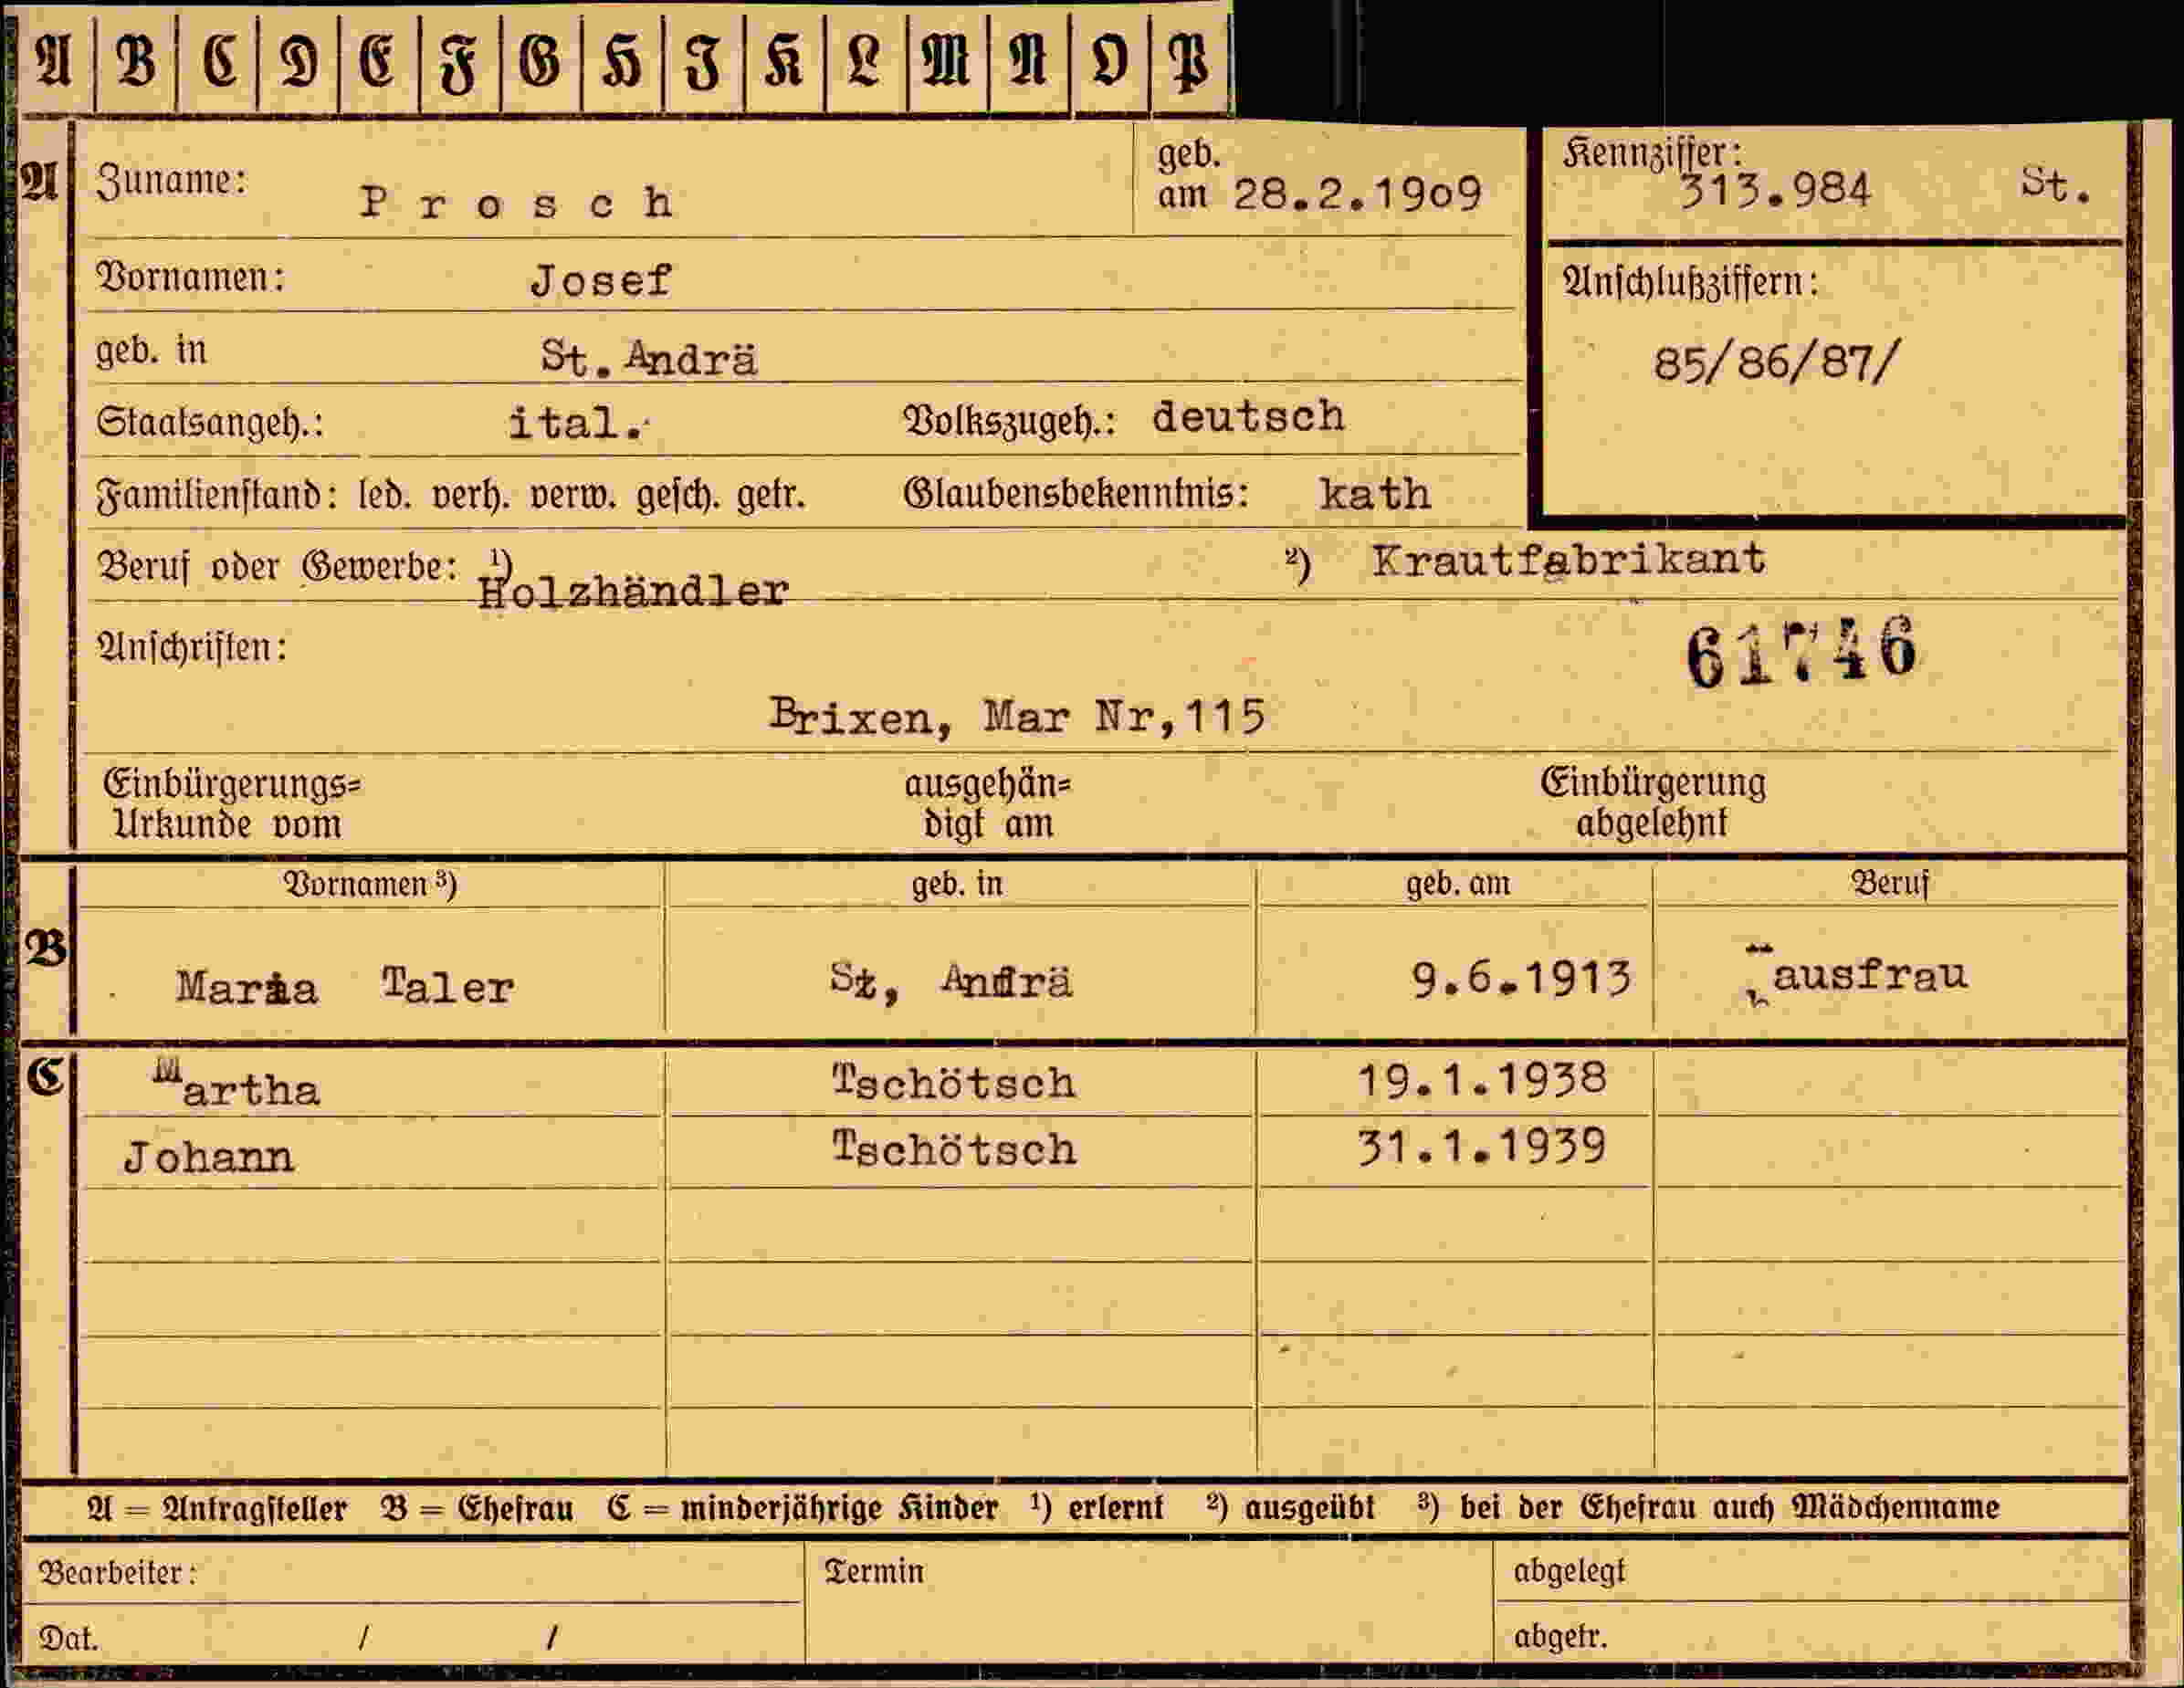 A B C D E F G H I K L M N O P
A Zuname: Prosch geb. am 28.2.1909 Kennziffer: 313.984 St.
Vornamen: Josef Anschlußziffern:
geb. in St. Andrä 85/86/87/
Staatsangeh.: ital. Volkszugeh.: deutsch
Familienstand: led. verh. verw. gesch. getr. Glaubensbekenntnis: kath
Beruf oder Gewerbe: 1) Holzhändler 2) Krautfabrikant
Anschriften: 61746
Brixen, Mar Nr,115
Einbürgerungs= ausgehän= Einbürgerung
Urkunde vom digt am abgelehnt
Vornamen 3) geb. in geb. am Beruf
B Maria Taler St, Andrä 9.6.1913 Hausfrau
C Martha Tschötsch 19.1.1938
Johann Tschötsch 31.1.1939
A = Antragsteller B = Ehefrau C = minderjährige Kinder 1) erlernt 2) ausgeübt 3) bei der Ehefrau auch Mädchenname
Bearbeiter: Termin abgelegt
Dat. / / abgetr.